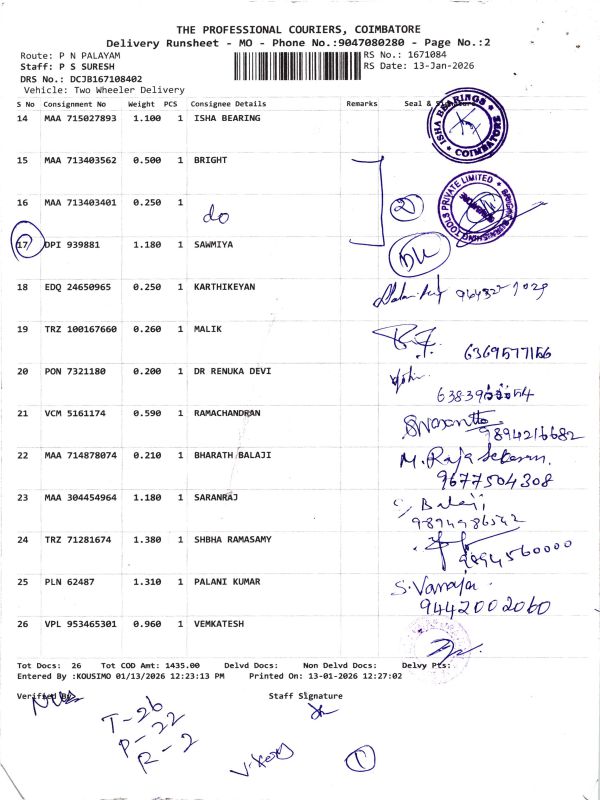 THE PROFESSIONAL COURIERS, COIMBATORE
Delivery Runsheet - MO - Phone No.:9047080280 - Page No.:2
Route: P N PALAYAM RS No.: 1671084
Staff: P S SURESH RS Date: 13-Jan-2026
DRS No.: DCJB167108402
Vehicle: Two Wheeler Delivery
S No Consignment No Weight PCS Consignee Details Remarks Seal & Signature
14 MAA 715027893 1.100 1 ISHA BEARING ISHA BEARINGS COIMBATORE
15 MAA 713403562 0.500 1 BRIGHT
16 MAA 713403401 0.250 1 do 2 TOOLS PRIVATE LIMITED
17 DPI 939881 1.180 1 SAWMIYA
18 EDQ 24650965 0.250 1 KARTHIKEYAN
19 TRZ 100167660 0.260 1 MALIK
20 PON 7321180 0.200 1 DR RENUKA DEVI
21 VCM 5161174 0.590 1 RAMACHANDRAN
9894216682
22 MAA 714878074 0.210 1 BHARATH BALAJI M. Raja Sekaran.
9677504308
23 MAA 304454964 1.180 1 SARANRAJ Balaji
24 TRZ 71281674 1.380 1 SHBHA RAMASAMY
9894560000
25 PLN 62487 1.310 1 PALANI KUMAR S. Vanaja.
9442002060
26 VPL 953465301 0.960 1 VEMKATESH
Tot Docs: 26 Tot COD Amt: 1435.00 Delvd Docs: Non Delvd Docs: Delvy Pts:
Entered By :KOUSIMO 01/13/2026 12:23:13 PM Printed On: 13-01-2026 12:27:02
Verified By Staff Signature
T-26
P-22
R-2
1